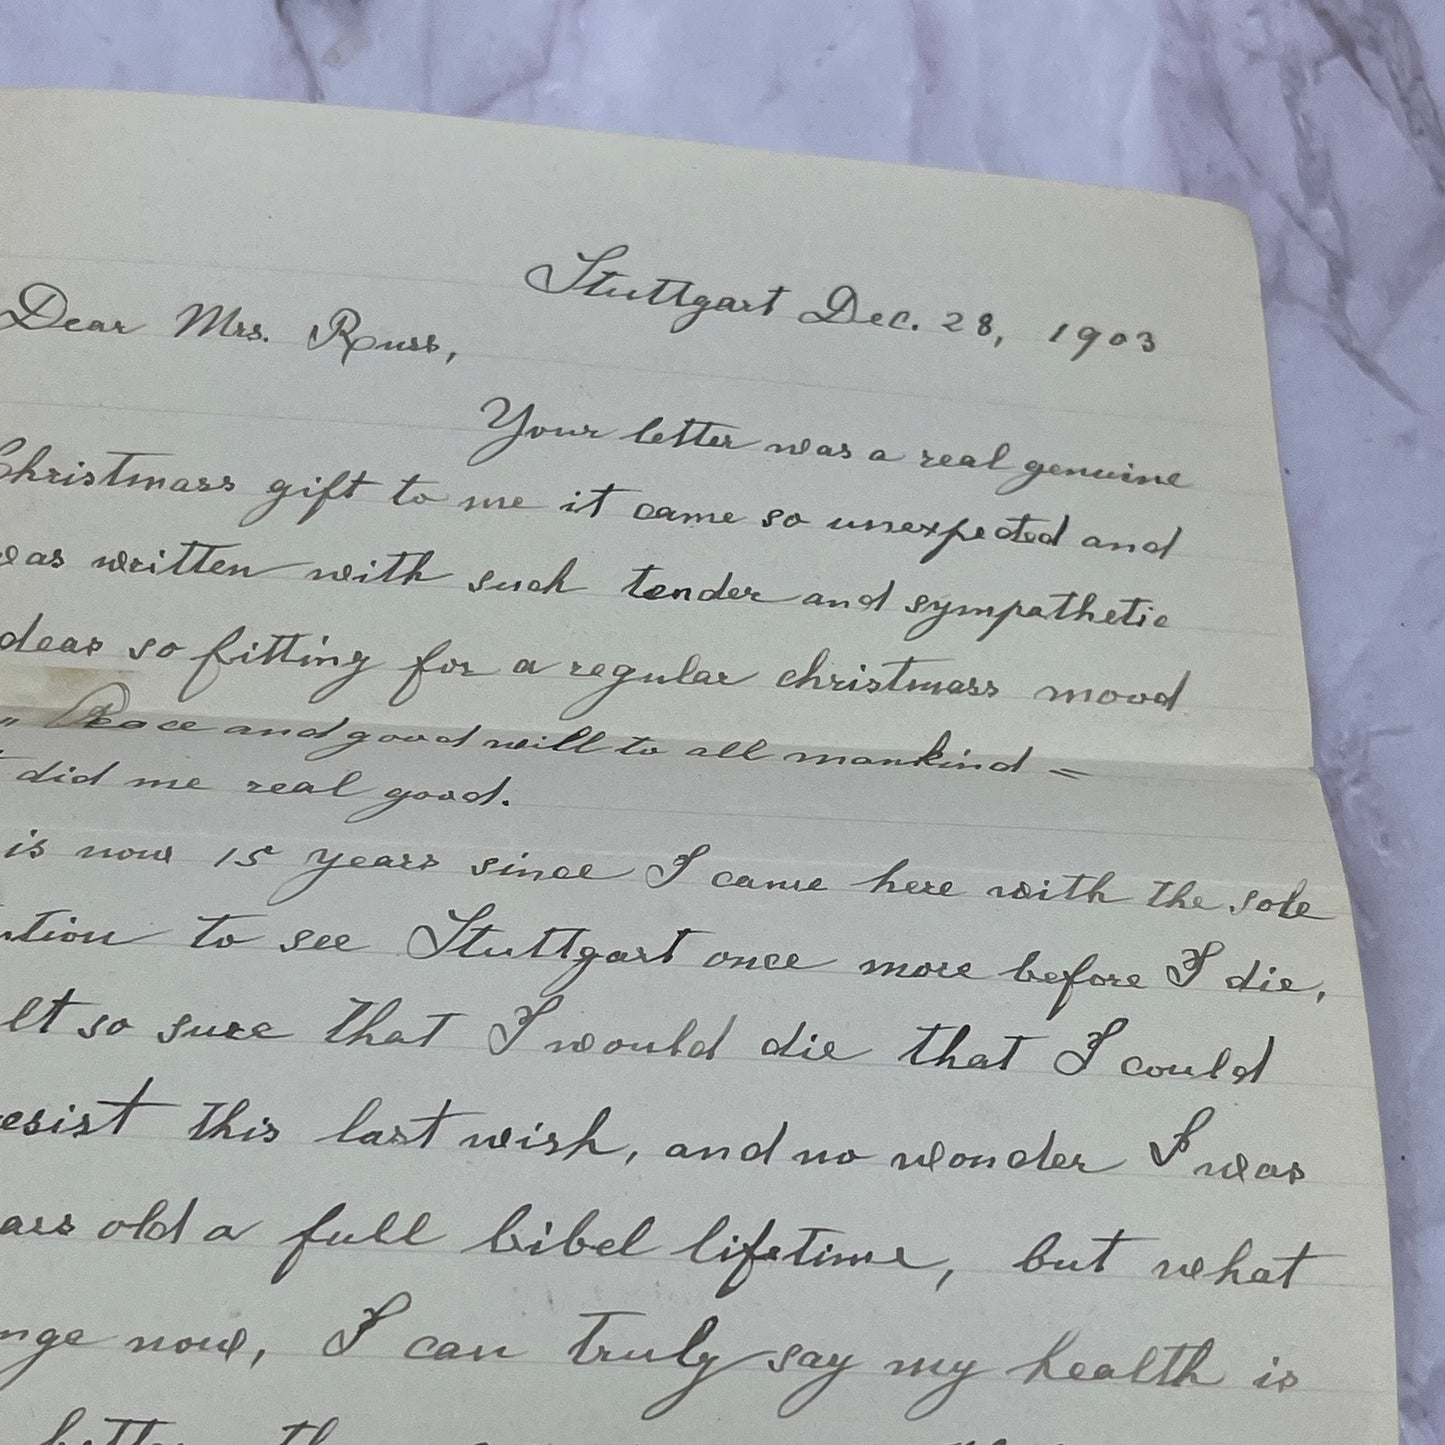 Stuttgart Dec. 28, 1903
Dear Mrs. Russ,
Your letter was a real genuine
Christmass gift to me it came so unexpected and
was written with such tender and sympathetic
deas so fitting for a regular christmass mood
" Peace and good will to all mankind =
did me real good.
is now 15 years since I came here with the sole
ntion to see Stuttgart once more before I die,
lt so sure that I would die that I could
resist this last wish, and no wonder I was
ars old a full bibel lifetime, but what
nge now, I can truly say my health is